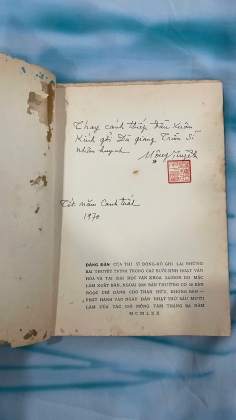 Thay cánh thiếp Đầu Xuân
Kính gởi Dã giang Trần Sĩ
Nhân huynh
Mộng Tuyết
Tết năm Canh tuất
1970
ĐÁNG ĐÀN CỦA THI SĨ ĐÔNG-HỒ GHI LẠI NHỮNG
BÀI THUYẾT TRÌNH TRONG CÁC BUỔI SINH HOẠT VĂN
HÓA VÀ TẠI ĐẠI HỌC VĂN KHOA SAIGON DO MẶC
LÂM XUẤT BẢN, NGOÀI 2000 BẢN THƯỜNG CÓ BẢN
NGỌC CHỈ DÀNG CHO THÂN HỮU, KHÔNG BÁN —
PHÁT HÀNH VÀO NGÀY ĐẢN NHẬT THỨ SÁU MƯƠI
LĂM CỦA TÁC GIẢ MỒNG TÁM THÁNG BA NĂM
MCMLXX